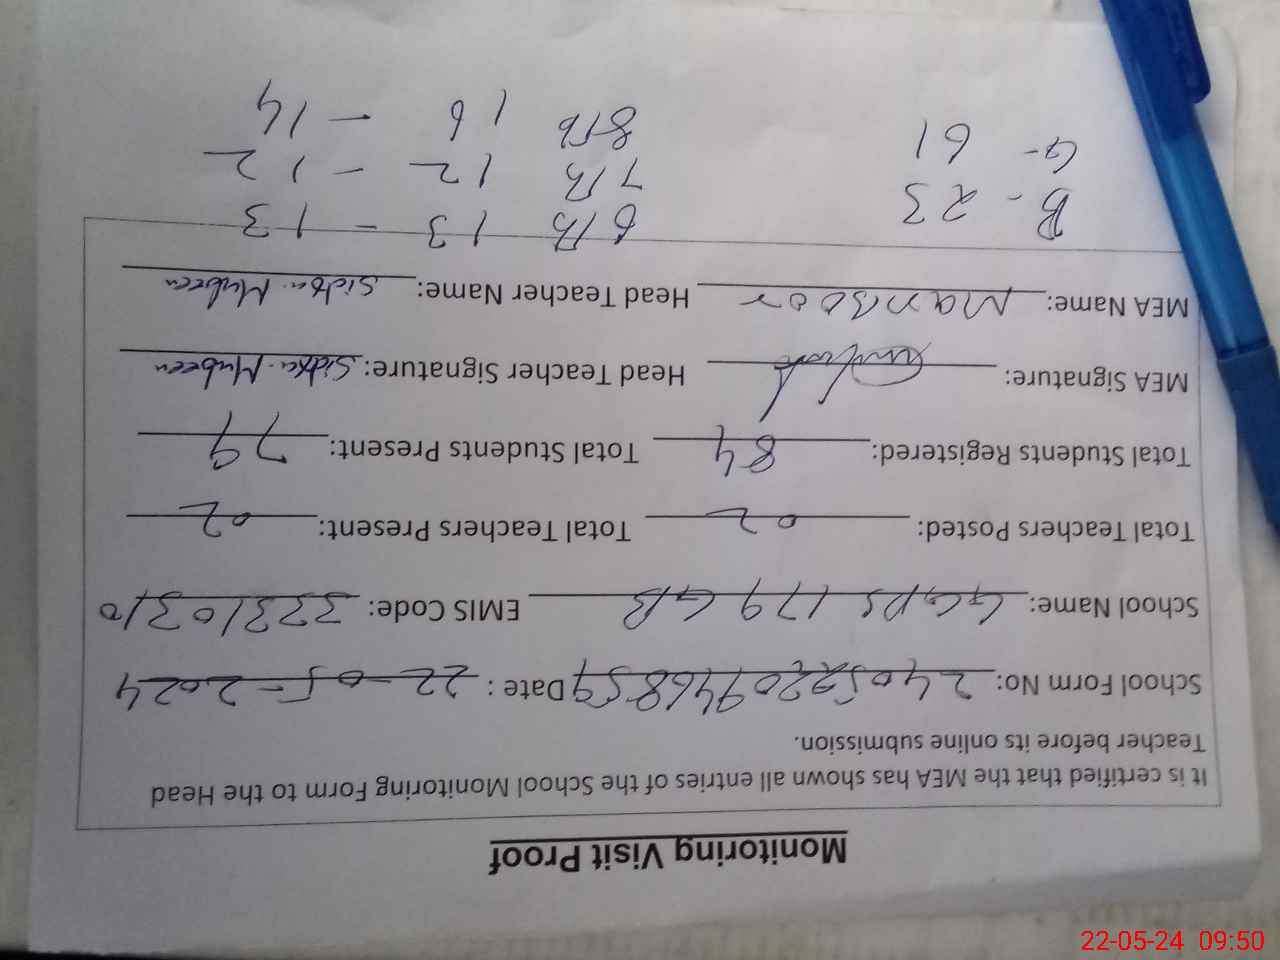 Monitoring Visit Proof
It is certified that the MEA has shown all entries of the School Monitoring Form to the Head
Teacher before its online submission.
School Form No: 24052209446859 Date : 22-05-2024
School Name: GGPS 179 GB EMIS Code: 33310310
Total Teachers Posted: 02 Total Teachers Present: 02
Total Students Registered: 84 Total Students Present: 79
MEA Signature: Head Teacher Signature: Sidra Mubeen
MEA Name: Manzoor Head Teacher Name: Sidra Mubeen
B - 23 6th 13 - 13
G - 61 7th 12 - 12
8th 16 - 14
22-05-24 09:50